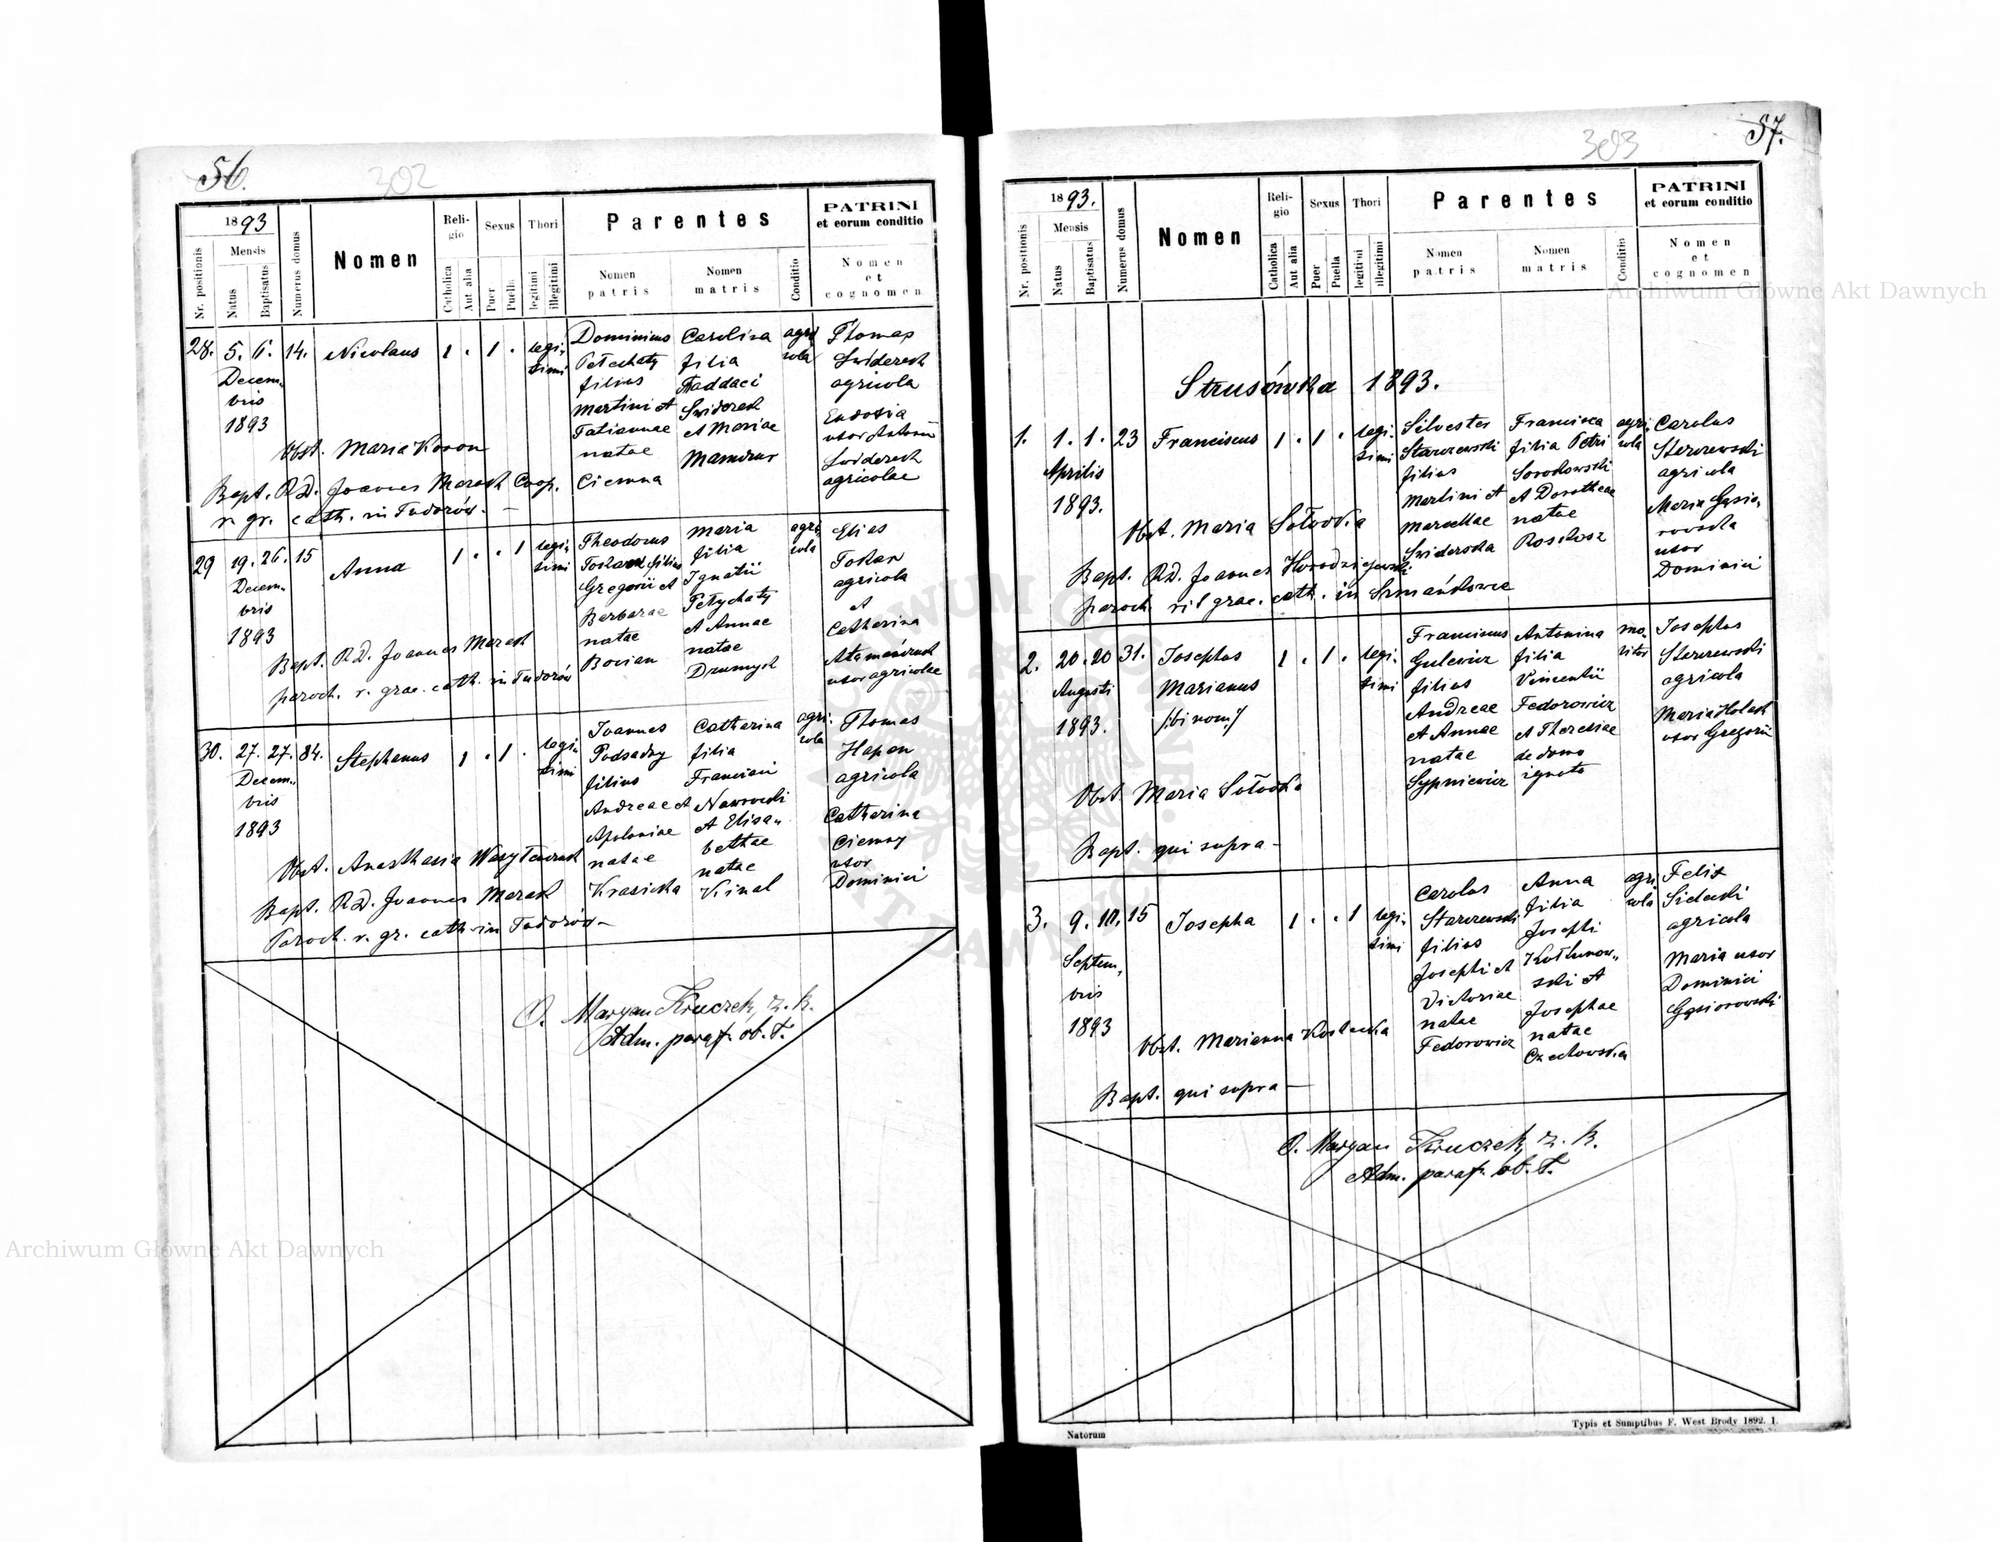 56.
302
1893
Nr. positionis
Mensis
Natus
Baptisatus
Numerus domus
Nomen
Reli-
gio
Catholica
Aut alia
Sexus
Puer
Puella
Thori
legitimi
illegitimi
Parentes
Nomen
patris
Nomen
matris
Conditio
PATRINI
et eorum conditio
Nomen
et
cognomen
28. 5. 6. 14. Nicolaus 1 . 1 . legi-
timi
Decem-
bris
1893
Dominicus
Petechaty
filius
Martini et
Tatiannae
natae
Ciemna
Carolina
filia
Thaddaei
Swiderek
et Mariae
agri
cola
Thomas
Swiderek
agricola
Eudoxia
uxor
Swiderek
agricolae
Obst. Maria Koron
Bapt. R.D. Joannes Marach Coop.
r. gr. cath. in Tudorów. —
29 19. 26. 15 Anna 1 . . 1 legi-
timi
Decem-
bris
1893
Theodorus
filius
Gregorii et
Barbarae
natae
Bocian
Maria
filia
Ignatii
Petychaty
et Annae
natae
agri-
cola
Elias
Tokar
agricola
et
Catharina
uxor agricolae
Bapt. R.D. Joannes Marach
paroch. r. grae. cath. in Tudorów
30. 27. 27. 84. Stephanus 1 . 1 . legi-
timi
Decem-
bris
1893
Joannes
Podsadny
filius
Andreae et
Apoloniae
natae
Krasicka
Catharina
filia
Francisci
Nawrocki
et Elisa-
bethae
natae
Kinal
agri-
cola
Thomas
Hapon
agricola
Catharina
Ciemny
uxor
Dominici
Obst. Anasthasia
Bapt. R.D. Joannes Marach
Paroch. r. gr. cath. in Tudorów —
O. Maryan Kruczek, z. k.
Adm. paraf. ob. ł.
57.
303
1893.
Nr. positionis
Mensis
Natus
Baptisatus
Numerus domus
Nomen
Reli-
gio
Catholica
Aut alia
Sexus
Puer
Puella
Thori
legitimi
illegitimi
Parentes
Nomen
patris
Nomen
matris
Conditio
PATRINI
et eorum conditio
Nomen
et
cognomen
Strusówka 1893.
1. 1. 1. 23 Franciscus 1 . 1 . legi-
timi
Aprilis
1893.
Silvester
Starczewski
filius
Martini et
Marcellae
Swiderska
Francisca
filia Petri
Sorokowski
et Dorotheae
natae
Roskosz
agri-
cola
Carolus
Starczewski
agricola
Maria Gąsio-
rowska
uxor
Dominici
Obst. Maria Sołovka
Bapt. R.D. Joannes
paroch. rit grae. cath. in Szmańkowce
2. 20. 20 31. Josephus 1 . 1 . legi-
timi
Marianus
/binom/
Augusti
1893.
Franciscus
Gulewicz
filius
Andreae
et Annae
natae
Sypniewicz
Antonina
filia
Vincentii
Fedorowicz
et Theresiae
de domo
ignota
mo-
litor
Josephus
Starczewski
agricola
Maria
uxor Gregorii
Obst Maria Sołovka
Bapt. qui supra —
3. 9. 10. 15 Josepha 1 . . 1 legi-
timi
Septem-
bris
1893
Carolus
Starczewski
filius
Josephi et
Victoriae
natae
Fedorowicz
Anna
filia
Josephi
Kołtunow-
ski et
Josephae
natae
Czechowska
agri-
cola
Felix
Sielecki
agricola
Maria uxor
Dominici
Gąsiorowski
Obst. Marianna
Bapt. qui supra —
O. Maryan Kruczek, z. k.
Adm. paraf. ob. ł.
Natorum
Typis et Sumptibus F. West Brody 1892. I.
Archiwum Główne Akt Dawnych
Archiwum Główne Akt Dawnych